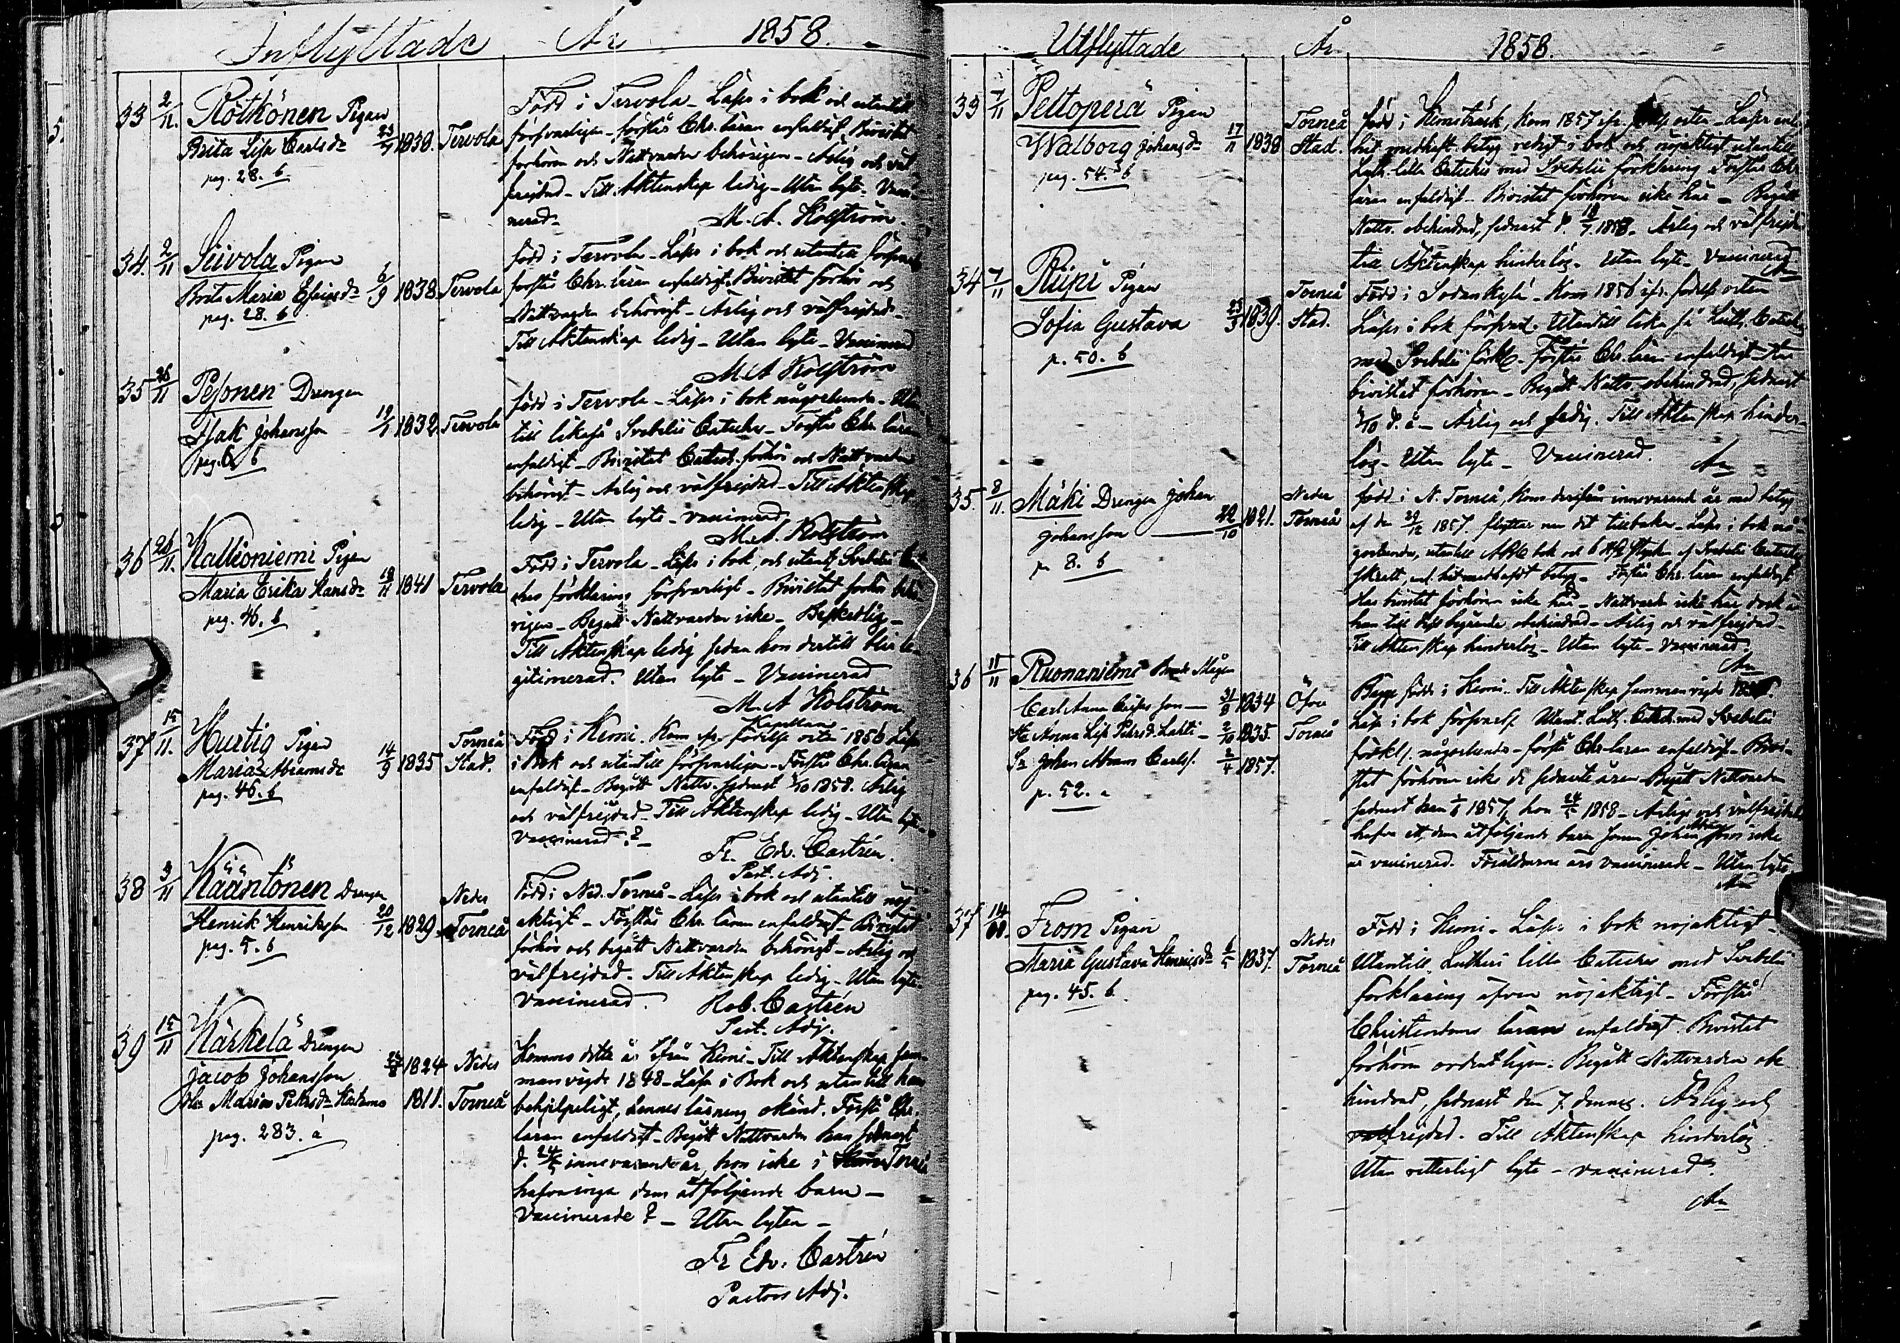 Inflyttade År 1858.
33 2/11. Rötkönen Pigan
Brita Lisa Carlsdr 23/7 1839. Tervola
pag. 28. b
Född i Tervola - Läser i bok och utantill
försvarligen - förstår Chr. läran enfaldigt. Bivistat
förhören och Nattvarden behörigen - Ärlig och väl-
frejdad - Till Äktenskap ledig - Utan lyte. Vacci-
nerad -
M. A. Holström.
34. 2/11 Siivola Pigan
Brita Maria Esaiasdr 6/9 1838. Tervola
pag. 28. b
född i Tervola - Läser i bok och utantill försvarl.
förstår Chr. läran enfaldigt. Bivistat förhör och
Nattvarden behörigt - Ärlig och välfrejdad -
Till Äktenskap ledig - Utan lyte - Vaccinerad
M A Holström
35 26/11 Pesonen Drengen
Isak Johansson 19/1 1832. Tervola
pag. 6. b
född i Tervola - Läser i bok någorlunda - Utan-
till likaså Svebelii Cateches - Förstår Chr. läran
enfaldigt - Bivistat Catech. förhör och Nattvarden
behörigt - Ärlig och välfrejdad - Till Äktenskap
ledig - Utan lyte - vaccinerad
M. A. Holström
36 26/11. Kallioniemi Pigan
Maria Erika Hansdr 18/11 1841 Tervola
pag. 46. b
Född i Tervola - Läser i bok, och utantill Svebelii Cate-
ches förklaring försvarligt - Bivistat förhör behö-
rigen - Begått Nattvarden icke - Beskedlig -
Till Äktenskap ledig sedan hon dertill blir le-
gitimerad. Utan lyte - Vaccinerad
M. A Holström
Kapellan
37 15/11. Hurtig Pigan
Maria Abramsdr 14/9 1835 Torneå Stad.
pag. 46. b
Född i Kemi - Kom ifr. födelse orten 1856 Läser
i bok och utantill försvarligen - Förstår Chr. läran
enfaldigt - Begått Nattv. sednast 3/10 1858. Ärlig
och välfrejdad - Till Äktenskap ledig - Utan lyte -
vaccinerad? -
Fr. Edv. Castrén.
Past. Adj.
38 3/11 Kääntönen Drengen
Henrik Henriksson 20/12 1829. Neder Torneå
pag. 5. b
Född i Ned. Torneå - Läser i bok och utantill nöj-
aktigt - Förstår Chr. läran enfaldigt - Bivistat
förhör och begått Nattvarden behörigt - Ärlig och
välfrejdad - Till Äktenskap ledig - Utan lyte
vaccinerad
Rob. Castrén
Past. Adj.
39 15/11 Kärkelä Drengen
Jacob Johansson 1824 Neder
Hu Maria Petersdr 1811. Torneå
pag. 283. a
Kommo detta år ifrån Kemi - Till Äktenskap sam-
manvigde 1848 - Läser i Bok och utantill han
behjelpeligt, hennes läsning okänd. Förstå Chr.
läran enfaldigt - Begått Nattvarden han sednast
d. 24/5 innevarande år, hon icke i Torneå
hafva inga dem åtföljande barn -
Vaccinerade? - Utan lyten -
Fr Edv. Castrén
Pastors Adj.
Utflyttade År 1858.
33 7/11 Peltoperä Pigan
Walborg Johansdr 17/11 1838 Torneå Stad.
pag. 54. b
född i Kemiträsk, kom 1857 ifr. födelse orten - Läser enl.
hit medhaft betyg redigt i bok och nöjaktigt utantill
Luth. lilla Cateches med Svebelii förklaring Förstår Chr.
läran enfaldigt - Bivistat förhören icke här - Begått
Nattv. obehindrad, sednast d. 18/7 1858 - Ärlig och välfrejdad
till Äktenskap hinderlös - Utan lyte - Vaccinerad
An
34 7/11 Riipi Pigan
Sofia Gustava 23/3 1839. Torneå Stad.
p. 50. b
Född i Sodankylä - Kom 1856 ifr. födelse orten
Läser i bok försvarl. Utantill lika så Luth. Catech.
med Svebelii förkl. Förstår Chr. läran enfaldigt - Har
bivistat förhören - Begått Nattv. obehindrad, sednast
3/10 d. å - Ärlig och fredlig. Till Äktenskap hinder-
lös - Utan lyte - Vaccinerad.
An
35. 8/11. Mäki Drengen Johan
Johansson 22/10 1821. Neder Torneå
p. 8. b
född i N. Torneå, kom derifrån innevarande år med betyg
af den 29/12 1857 flyttar nu dit tillbaka - Läser i bok nå-
gorlunda, utantill ABC bok och 6 stycken af Svebelii Catech.
skrift, enl. hitmedhaft betyg - Förstår Chr. läran enfaldigt
Har bivistat förhören icke här - Nattvard icke här dock är
han till dess begående obehindrad - Ärlig och välfrejdad -
Till Äktenskap hinderlös - Utan lyte - Vaccinerad.
An
36 11/11 Ruonaniemi Bonde Mågen
Carl Anna Caisasson 31/8 1834 Öfver
Hu Anna Lisa Petersd. Lahti 2/10 1835. Torneå
Sn Johan Abram Carls. 2/4 1857.
p. 52. a
Begge födde i Kemi. Till Äktenskap sammanvigde
Läsa i bok försvarl. Utant. Luth. Catech. med Svebelii
förkl. någorlunda - förstå Chr. läran enfaldigt - Bivi-
stat förhören icke de sednaste åren - Begått Nattvarden
sednast han 1/6 1857, hon 24/5 1858 - Ärlige och välfrejdade
hafva ett dem åtföljande barn Sonen Johan Abram som icke
är vaccinerad. Föräldrarne äro vaccinerade - Utan lyte.
An
37 14/11. From Pigan
Maria Gustava Henriksdr 6/5 1837. Neder Torneå
pag. 45. b
Född i Kemi - Läser i bok nöjaktigt -
Utantill Lutheri lilla Cateches med Svebelii
förklaring äfven nöjaktigt - Förstår
Christendoms läran enfaldigt Bivistat
förhören ordentligen. Begått Nattvarden obe-
hindrad, sednast den 7 dennes. Ärlig och
välfrejdad. Till Äktenskap hinderlös
Utan vitterligt lyte - vaccinerad
An